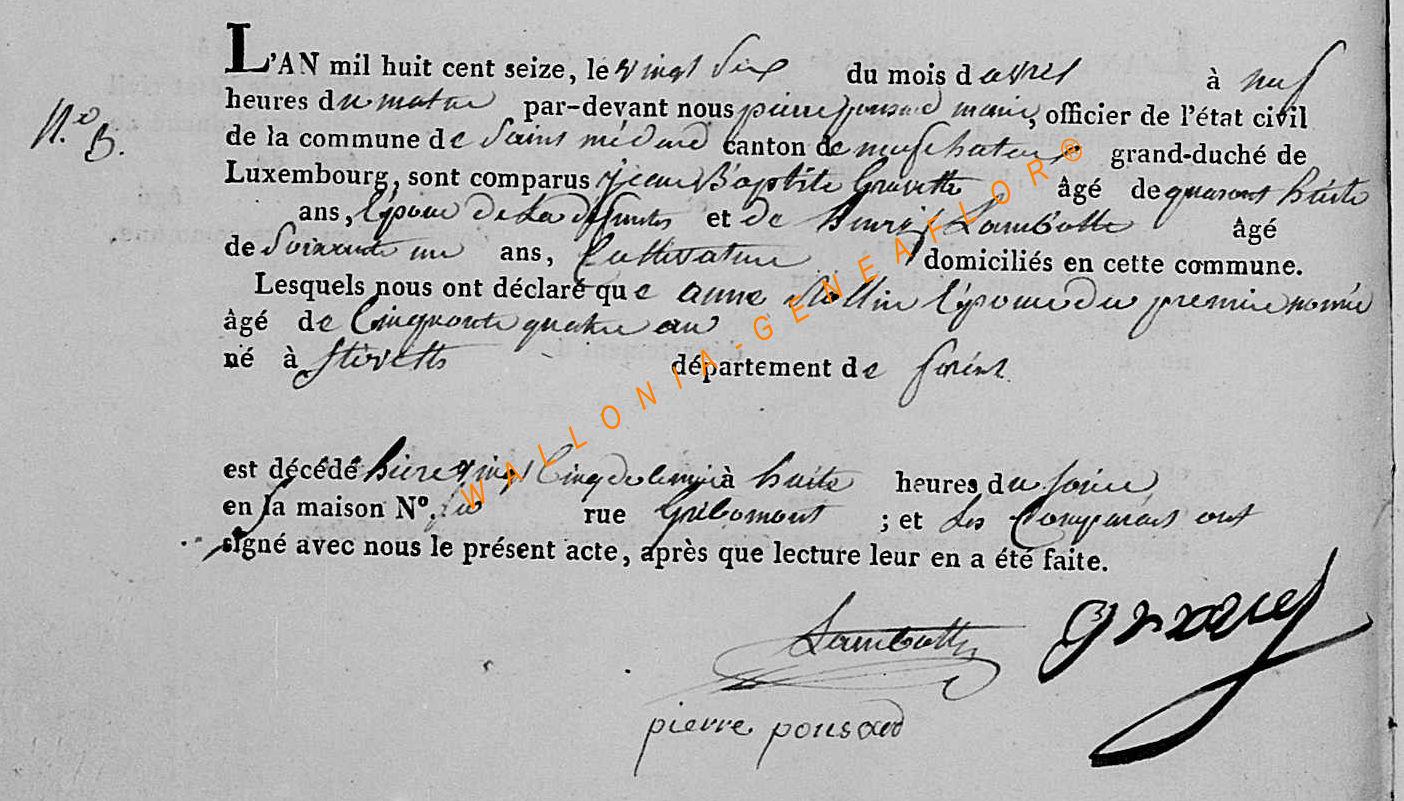 L'AN mil huit cent seize, le vingt six du mois d avril à neuf
heures du matin par-devant nous pierre ponsard maire, officier de l'état civil
N.º B.
de la commune de Saint médard canton de neufchateau grand-duché de
Luxembourg, sont comparus jean Baptiste âgé de quarant huite
ans, Epoux de la deffunte et de henry Lambotte âgé
de Soixante un ans, Cultivateur domiciliés en cette commune.
Lesquels nous ont déclaré que anne Epouse du premie nomée
âgé de Cinquante quatre ans
né à département de foriet
est décédé hiere vingt Cinq de à huite heures du soire
en sa maison Nº. rue Gribomont ; et Les Comparans ont
signé avec nous le présent acte, après que lecture leur en a été faite.
Lambotte
pierre ponsard
WALLONIA-GENEAFLOR®